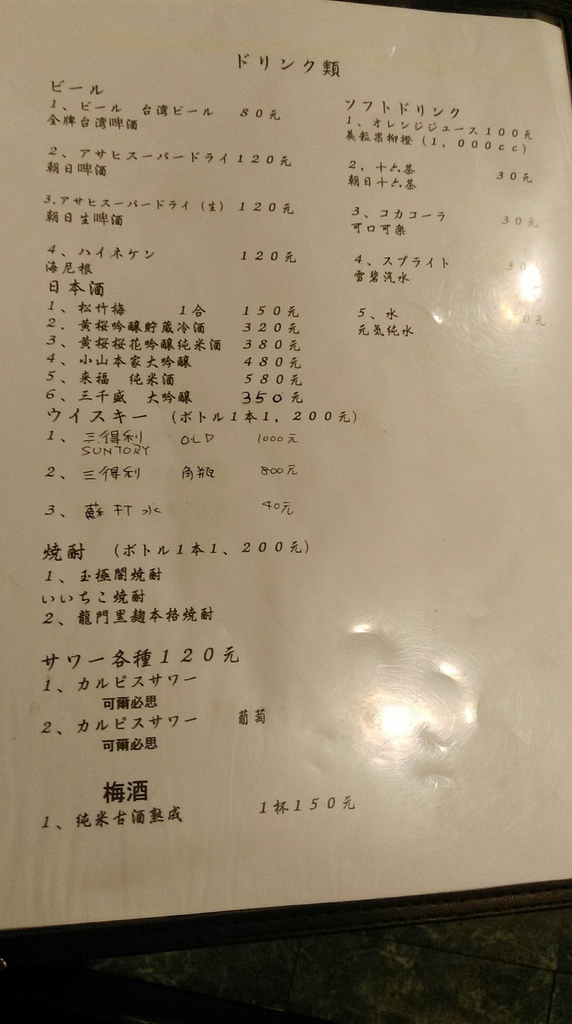 ドリンク類
ビール
1、ビール 台湾ビール 80元
金牌台湾啤酒
2、アサヒスーパードライ 120元
朝日啤酒
3.アサヒスーパードライ(生) 120元
朝日生啤酒
4、ハイネケン 120元
海尼根
日本酒
1、松竹梅 1合 150元
2.黄桜吟醸貯蔵冷酒 320元
3、黄桜桜花吟醸純米酒 380元
4、小山本家大吟醸 480元
5、来福 純米酒 580元
6、三千盛 大吟醸 350元
ウイスキー (ボトル1本1,200元)
1、三得利 OLD 1000元
SUNTORY
2、三得利 角瓶 800元
3、蘇打水 40元
焼酎 (ボトル1本1、200元)
1、玉極閣焼酎
いいちこ焼酎
2、龍門黒麹本格焼酎
サワー各種120元
1、カルピスサワー
可爾必思
2、カルピスサワー 葡萄
可爾必思
梅酒
1、純米古酒熟成 1杯150元
ソフトドリンク
1、オレンジジュース100元
美粒果柳橙(1,000cc)
2,十六茶 30元
朝日十六茶
3、コカコーラ 30元
可口可楽
4、スプライト 30
雪碧汽水
5、水 0元
元気純水